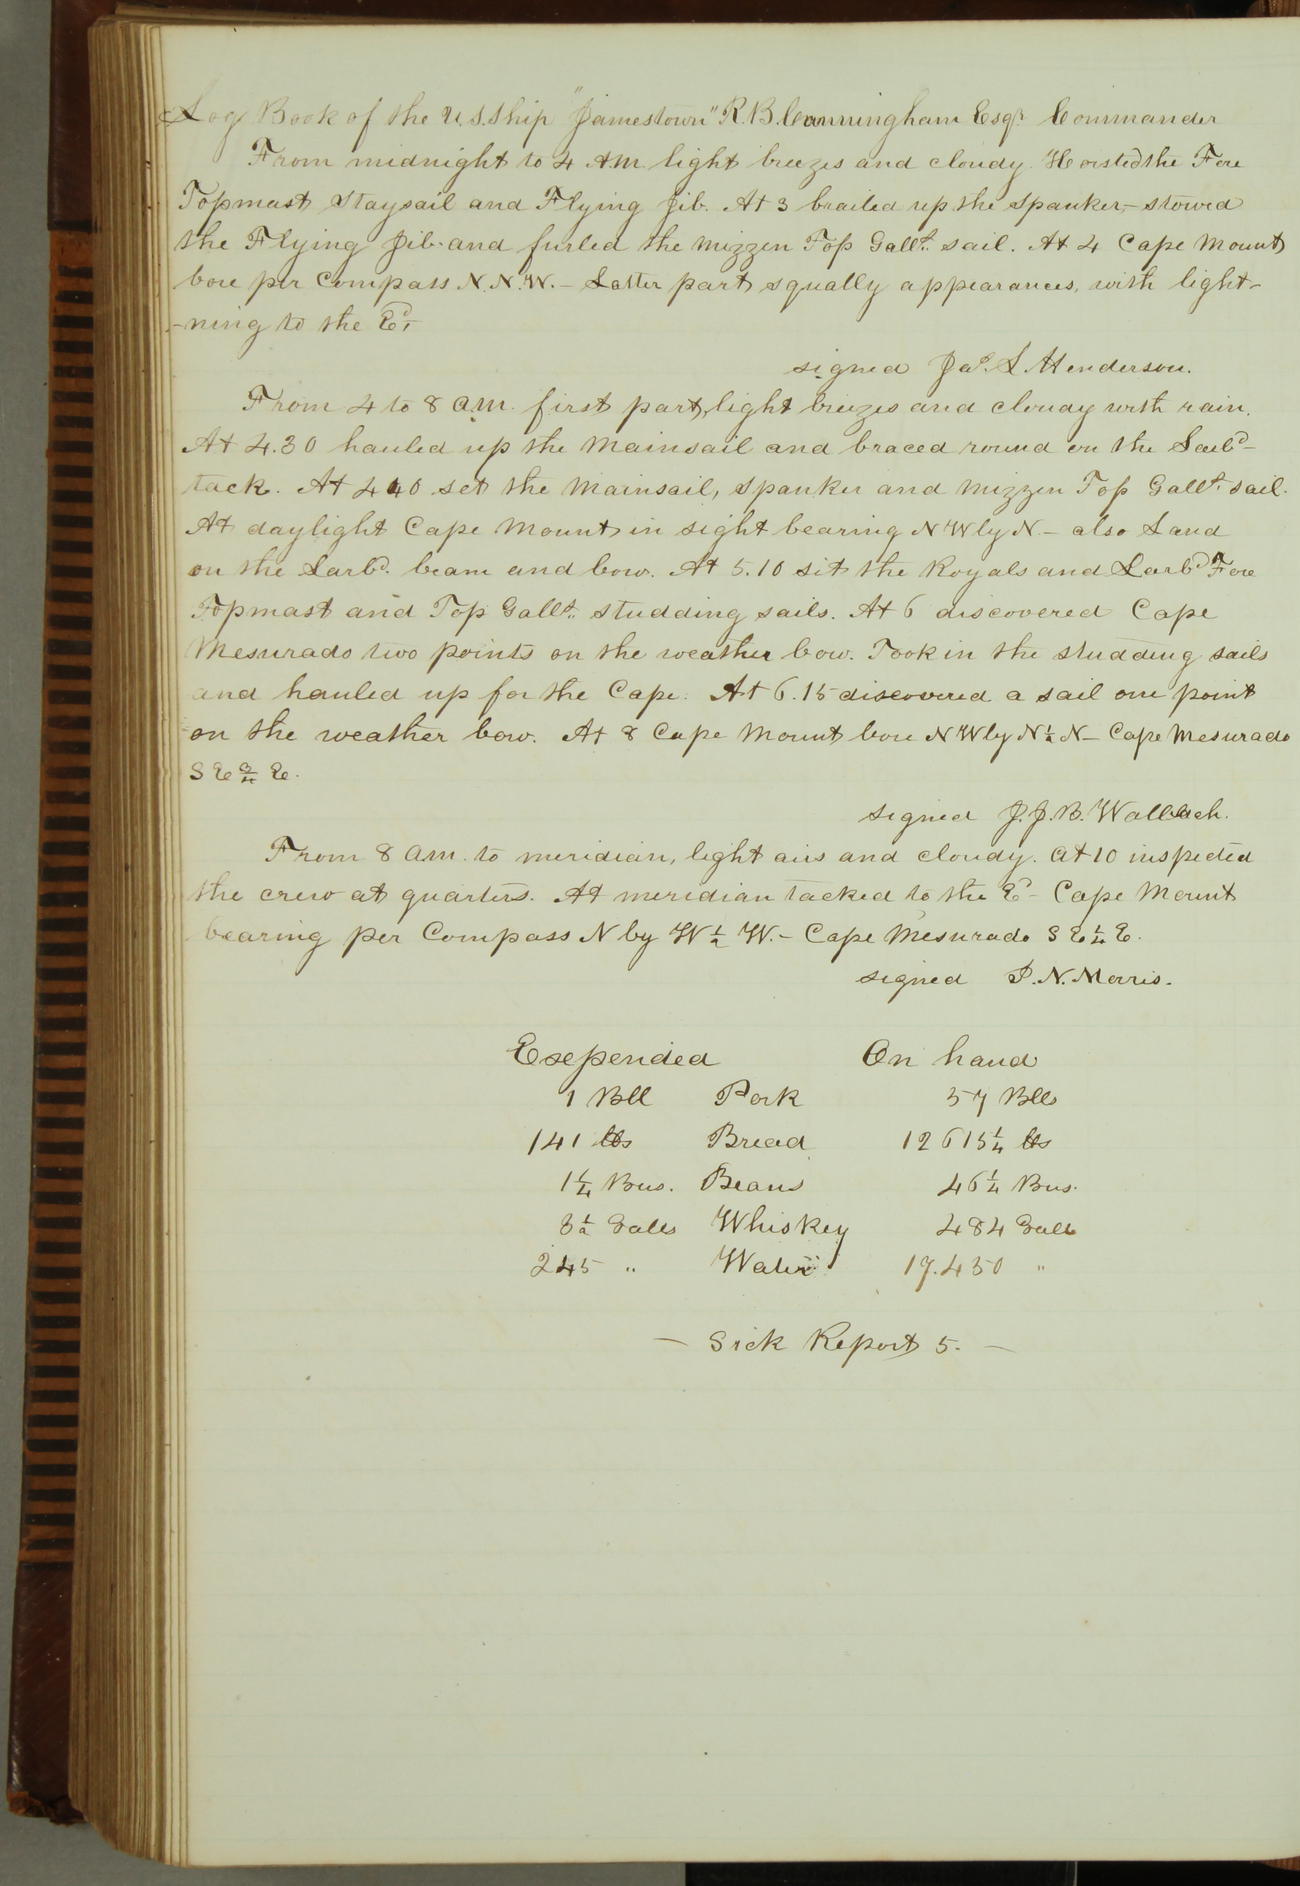 Log Book of the U.S. Ship "Jamestown" R. B. Cunningham Esqr. Commander
From midnight to 4 AM light breezes and cloudy. Hoisted the Fore
Topmast Staysail and Flying Jib. At 3 brailed up the Spanker,- stowed
the Flying Jib- and furled the Mizzen Top Gallt. sail. At 4 Cape Mount
bore per Compass N.N.W.- Latter part squally appearances, with light-
-ning to the Ed.-
signed Jas. L. Henderson.
From 4 to 8 A.M. first part, light breezes and cloudy with rain.
At 4.30 hauled up the Mainsail and braced round on the Larbd-
tack. At 4 40 set the Mainsail, Spanker and Mizzen Top Gallt. sail.
At daylight Cape Mount in sight bearing N W by N - also Land
on the Larbd. beam and bow. At 5.10 set the Royals and Larbd Fore
Topmast and Top Gallt. studding sails. At 6 discovered Cape
Mesurado two points on the weather bow. Took in the studding sails
and hauled up for the Cape. At 6.15 discovered a sail one point
on the weather bow. At 8 Cape Mount bore N W by N ½ N - Cape Mesurado
S E ¾ E.
signed J.J.B. Walbach.
From 8 A.M. to meridian, light airs and cloudy. At 10 inspected
the crew at quarters. At meridian tacked to the Ed - Cape Mount
bearing per Compass N by W ½ W.- Cape Mesurado S E ¼ E.
signed I. N. Morris.
Expended On hand
1 Bll Pork 57 Blls
141 lbs Bread 12615¼ lbs
1¼ Bus. Beans 46¼ Bus.
8½ Galls Whiskey 484 Galls
245 " Water 17.450 "
- Sick Report 5. -